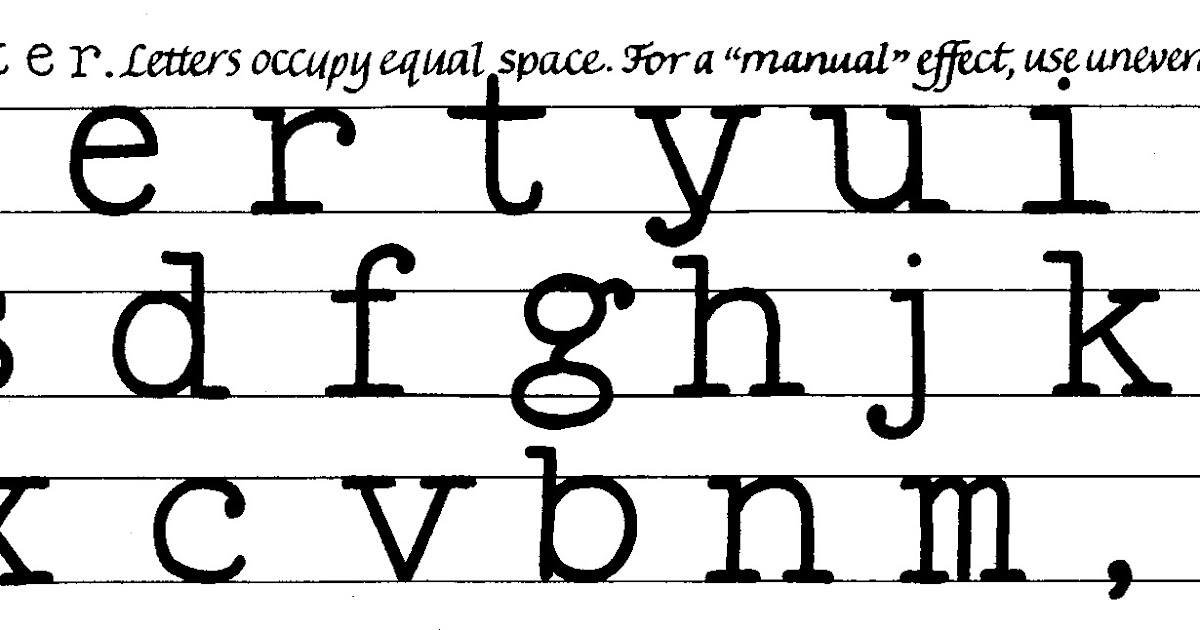 ter. Letters occupy equal space. For a “manual” effect, use uneven
e r t y u i
s d f g h j k
x c v b n m ,